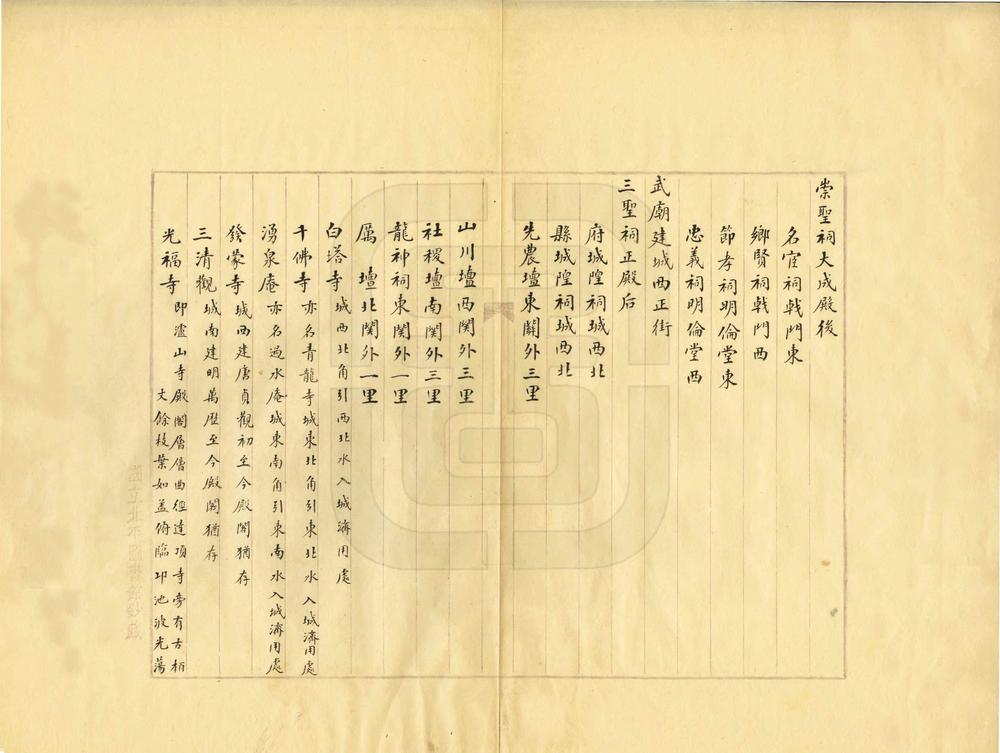 崇聖祠大成殿後
名宦祠戟門東
鄉賢祠戟門西
節孝祠明倫堂東
忠義祠明倫堂西
武廟建城西正街
三聖祠正殿后
府城隍祠城西北
縣城隍祠城西北
先農壇東關外三里
山川壇西関外三里
社稷壇南関外三里
龍神祠東関外一里
厲壇北関外一里
白塔寺城西北角引西北水入城濟用處
千佛寺亦名青龍寺城東北角引東北水入城濟用處
湧泉庵亦名過水庵城東南角引東南水入城濟用處
發蒙寺城西建唐貞觀初至今殿閣猶存
三清觀城南建明萬歷至今殿閣猶存
光福寺即瀘山寺殿閣層層曲徑達項寺旁有古栢
丈餘枝葉如蓋俯臨卭池波光蕩